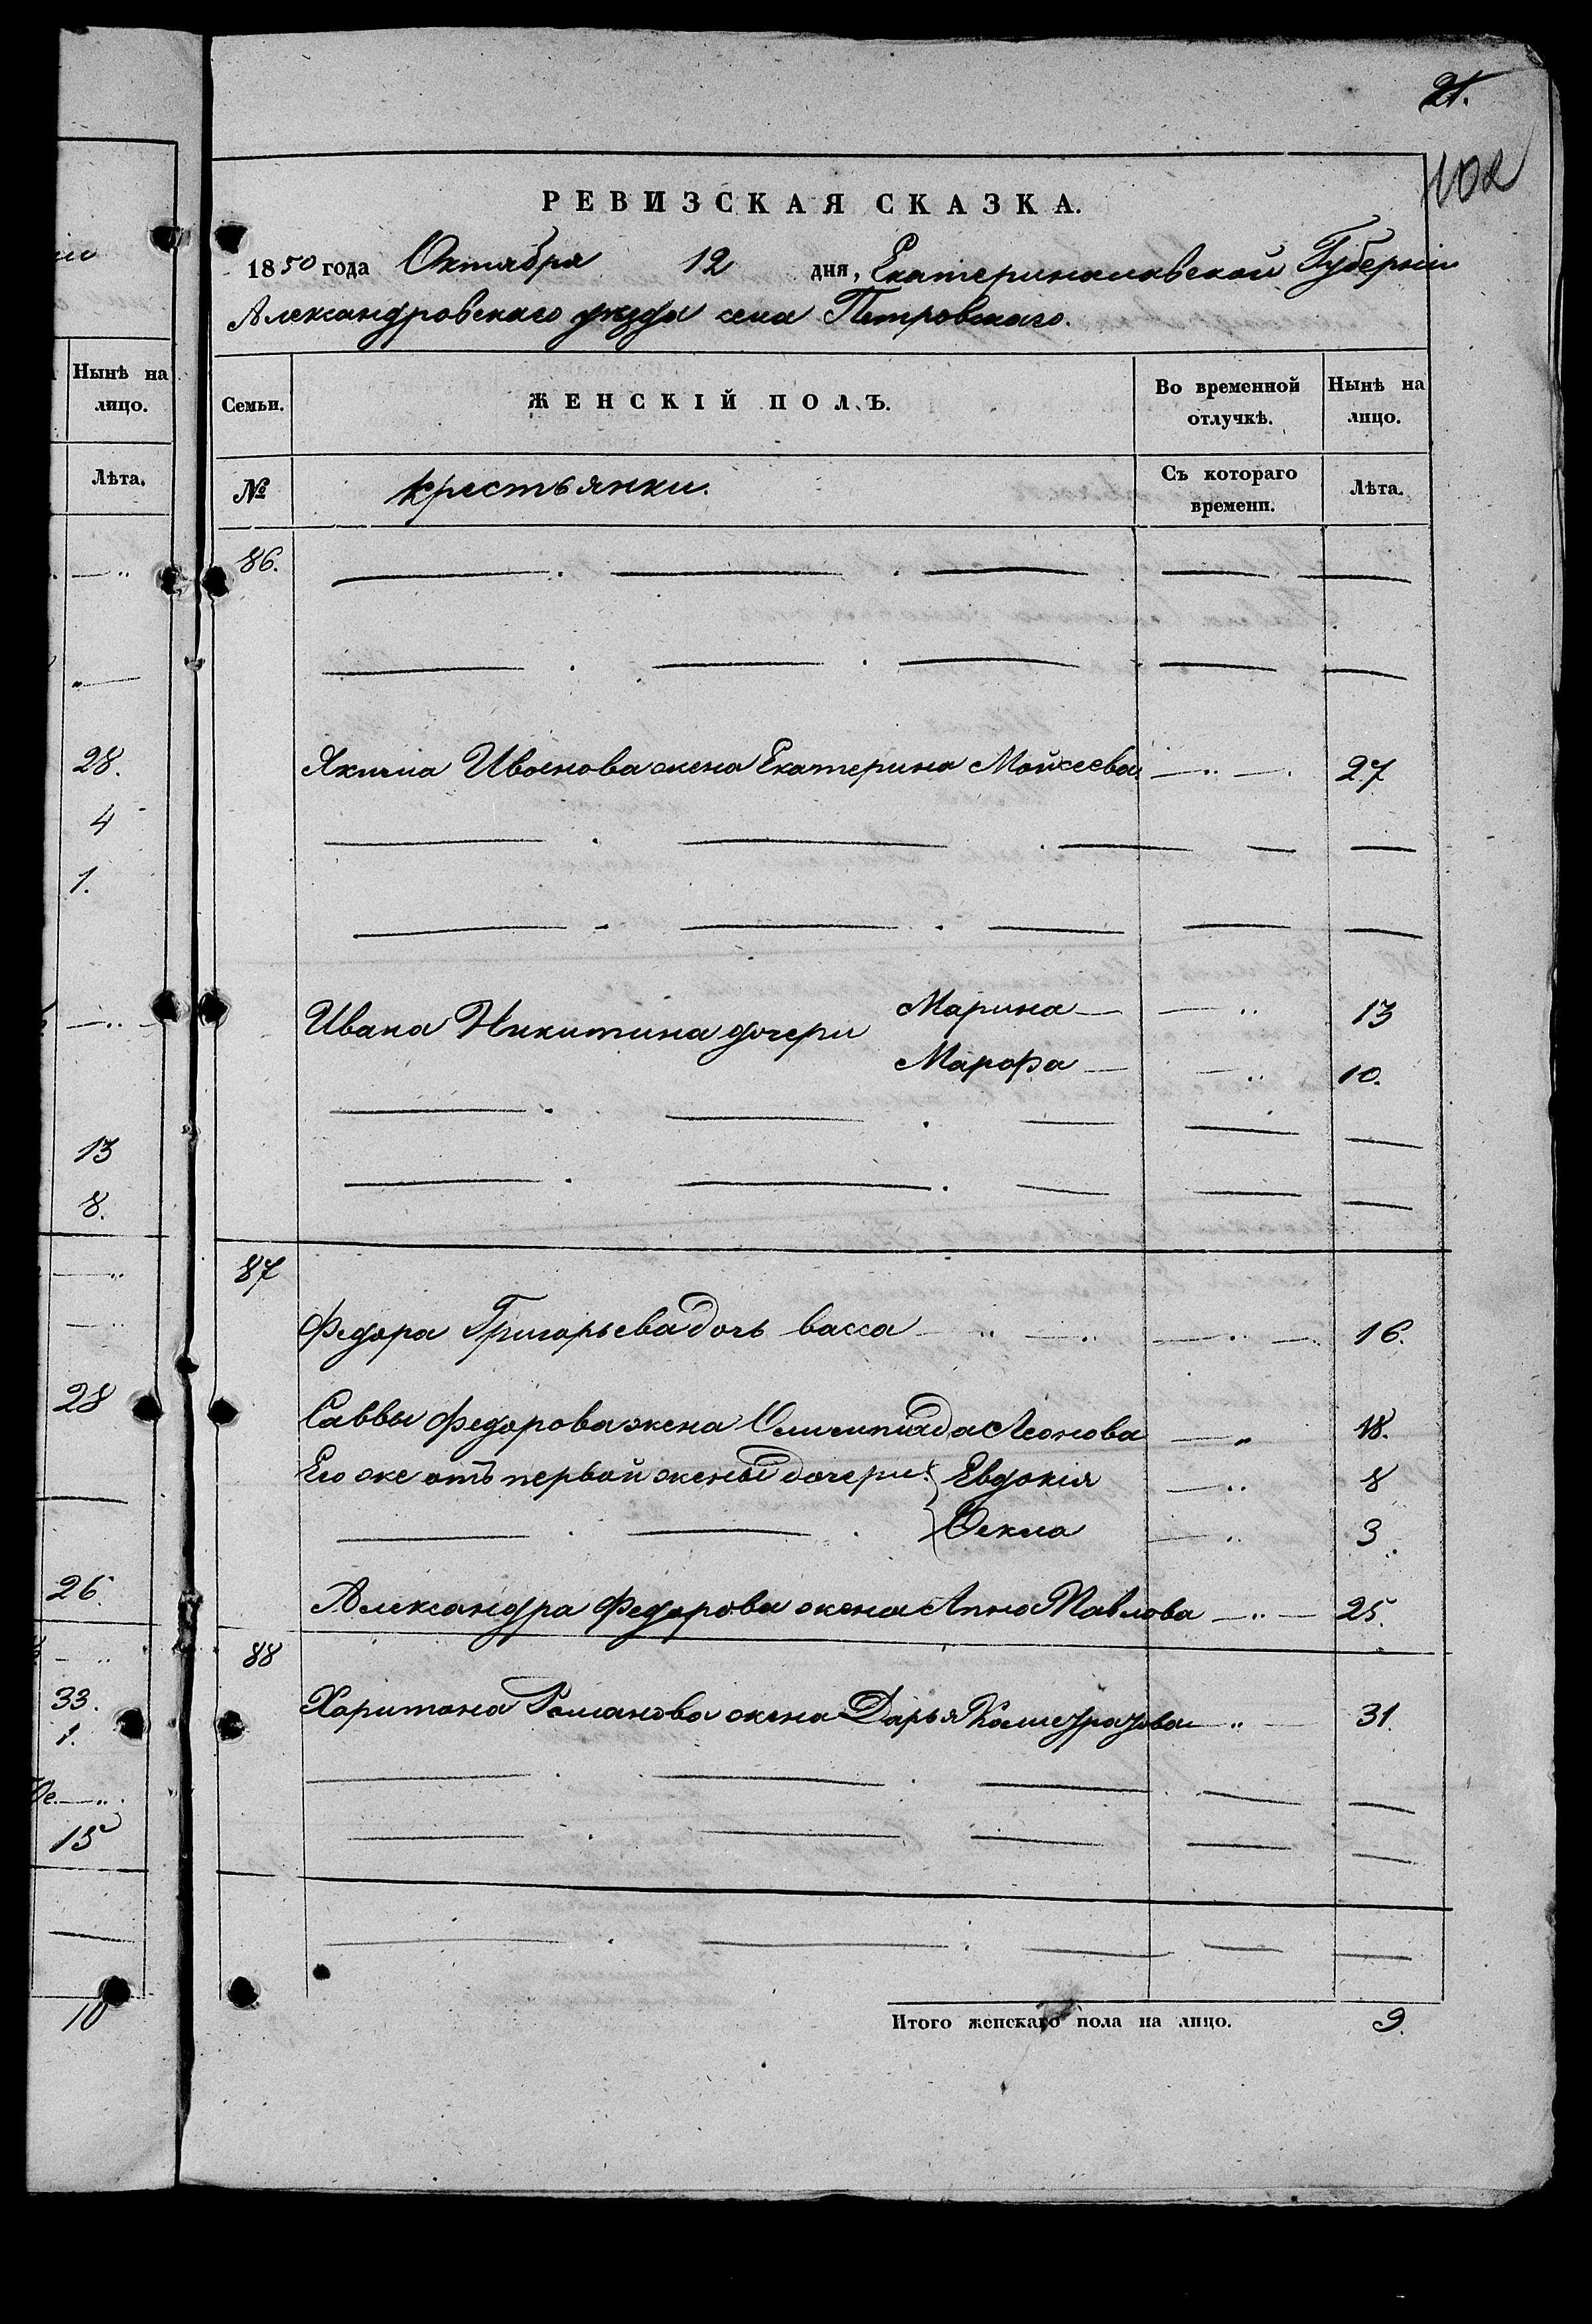 21.
102
РЕВИЗСКАЯ СКАЗКА.
1850 года Октября 12 дня, Екатеринославской Губерніи
Александровскаго уѣзда села Петровскаго.
Нынѣ на лицо.
Лѣта.
28.
4
1.
13
8.
28
26.
33.
1.
15
10
Семьи. ЖЕНСКІЙ ПОЛЪ. Во временной отлучкѣ. Нынѣ на лицо.
№ крестьянки. Съ котораго времени. Лѣта.
86.
Якима Иванова жена Екатерина Мойсеева 27
Ивана Никитина дочери Марина 13
Марфа 10.
87
Федора Григорьева дочь васса 16.
Саввы Федорова жена Олимпіяда Леонова 18.
Его же отъ первой жены дочери: Евдокія 8
Ѳекла 3
Александра Федорова жена Анна Павлова 25.
88
Харитона Романова жена Дарья 31.
Итого женскаго пола на лицо. 9.